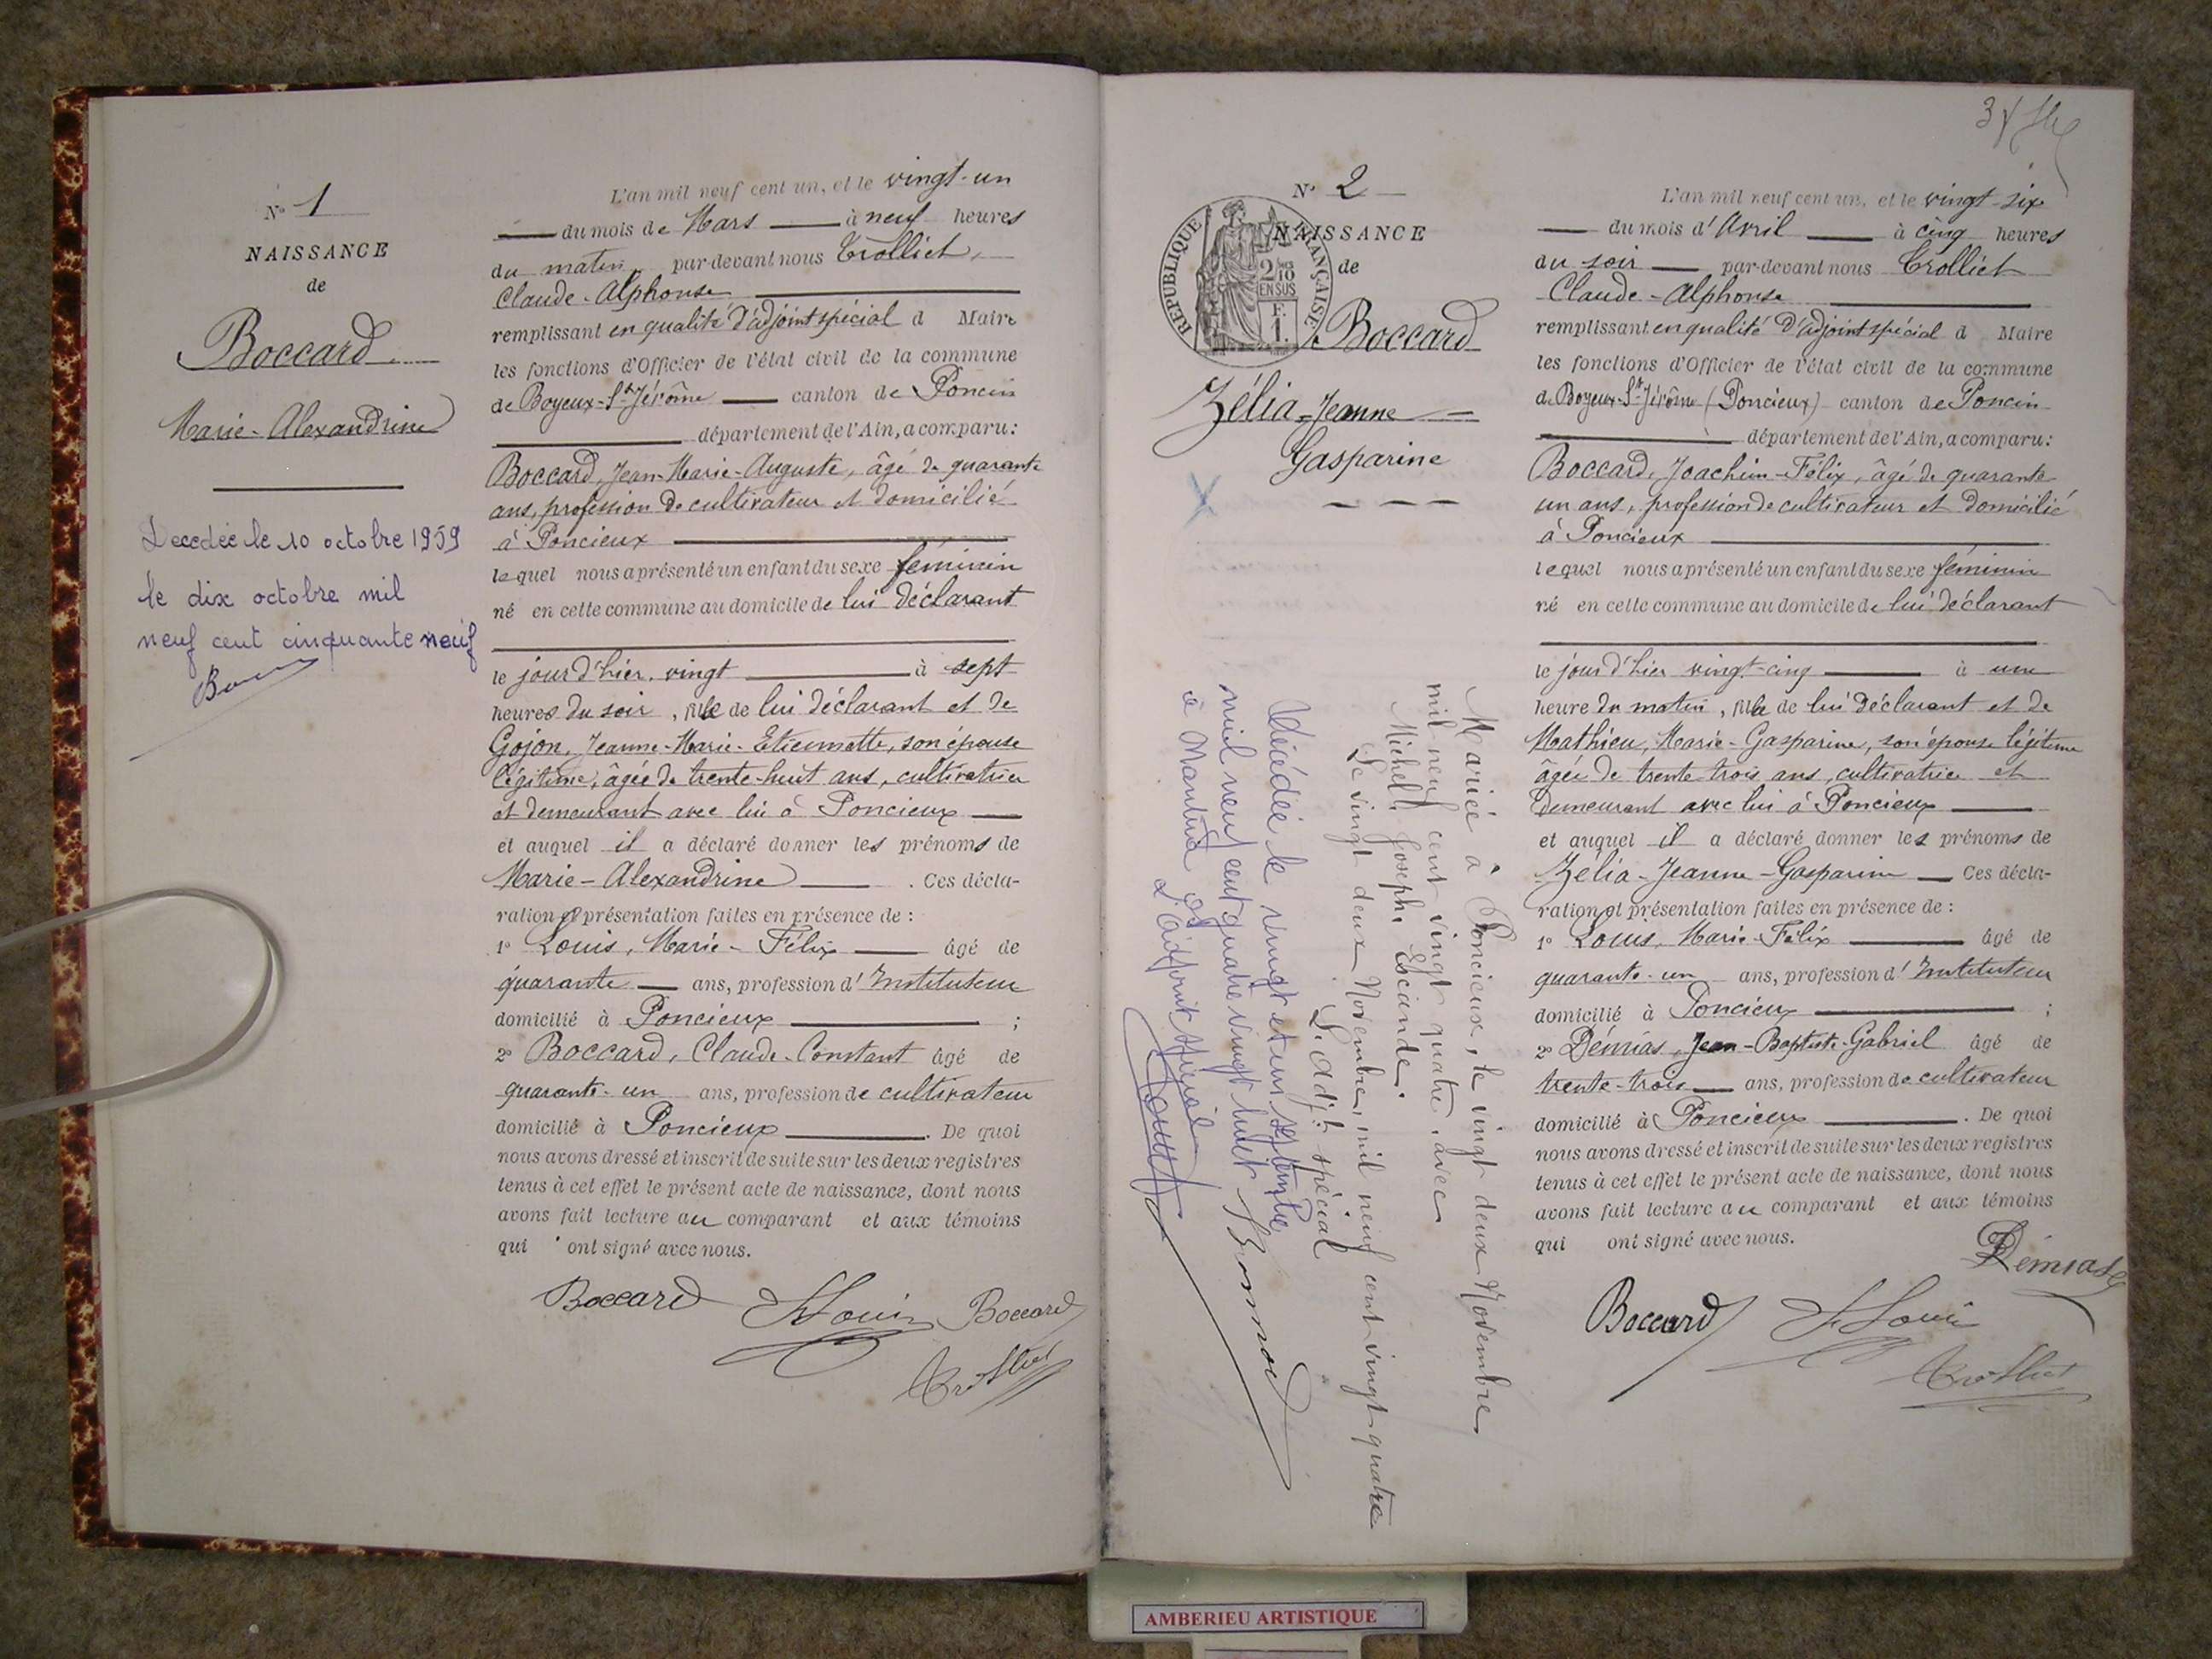 N° 1
NAISSANCE
de
Boccard
Marie-Alexandrine
Décédée le 10 octobre 1959
le dix octobre mil
neuf cent cinquante neuf
L'an mil neuf cent un, et le vingt-un
du mois de Mars à neuf heures
du matin, par-devant nous Trolliet,
Claude-Alphonse
remplissant en qualité d'adjoint spécial d Maire
les fonctions d'Officier de l'état civil de la commune
de Boyeux-St-Jérôme canton de Poncin
département de l'Ain, a comparu:
Boccard, Jean-Marie-Auguste, âgé de quarante
ans, profession de cultivateur et domicilié
à Poncieux
lequel nous a présenté un enfant du sexe féminin
né en cette commune au domicile de lui déclarant
le jour d'hier, vingt à sept
heures du soir, fille de lui déclarant et de
Gojon, Jeanne-Marie-Etiennette, son épouse
légitime, âgée de trente-huit ans, cultivatrice
et demeurant avec lui à Poncieux
et auquel il a déclaré donner les prénoms de
Marie-Alexandrine . Ces décla-
ration et présentation faites en présence de :
1° Louis, Marie-Félix âgé de
quarante ans, profession d'Instituteur
domicilié à Poncieux ;
2° Boccard, Claude-Constant âgé de
quarante-un ans, profession de cultivateur
domicilié à Poncieux . De quoi
nous avons dressé et inscrit de suite sur les deux registres
tenus à cet effet le présent acte de naissance, dont nous
avons fait lecture au comparant et aux témoins
qui ont signé avec nous.
Boccard F Louis Boccard
Trolliet
3
N° 2
NAISSANCE
de
RÉPUBLIQUE FRANÇAISE
2/10
EN SUS
F.
1.
Boccard
Zélia-Jeanne
Gasparine
Mariée à Poncieux, le vingt deux Novembre
mil neuf cent vingt quatre, avec
Michel Joseph Escande.
Le vingt deux Novembre, mil neuf cent vingt quatre
L'adjt spécial
Bonnod
Décédée le vingt et un septembre
mil neuf cent quatre vingt huit
à Nantua
L'adjoint spécial
L'an mil neuf cent un, et le vingt-six
du mois d'Avril à cinq heures
du soir par-devant nous Trolliet
Claude-Alphonse
remplissant en qualité d'adjoint spécial d Maire
les fonctions d'Officier de l'état civil de la commune
de Boyeux-St-Jérôme (Poncieux) canton de Poncin
département de l'Ain, a comparu:
Boccard, Joachim-Félix, âgé de quarante
un ans, profession de cultivateur et domicilié
à Poncieux
lequel nous a présenté un enfant du sexe féminin
né en cette commune au domicile de lui déclarant
le jour d'hier vingt-cinq à une
heure du matin, fille de lui déclarant et de
Mathieu, Marie-Gasparine, son épouse légitime
âgée de trente trois ans, cultivatrice et
demeurant avec lui à Poncieux
et auquel il a déclaré donner les prénoms de
Zélia-Jeanne-Gasparine Ces décla-
ration et présentation faites en présence de :
1° Louis, Marie-Félix âgé de
quarante-un ans, profession d'Instituteur
domicilié à Poncieux ;
2° Démias, Jean-Baptiste-Gabriel âgé de
trente-trois ans, profession de cultivateur
domicilié à Poncieux . De quoi
nous avons dressé et inscrit de suite sur les deux registres
tenus à cet effet le présent acte de naissance, dont nous
avons fait lecture au comparant et aux témoins
qui ont signé avec nous.
Démias
Boccard F Louis
Trolliet
AMBERIEU ARTISTIQUE